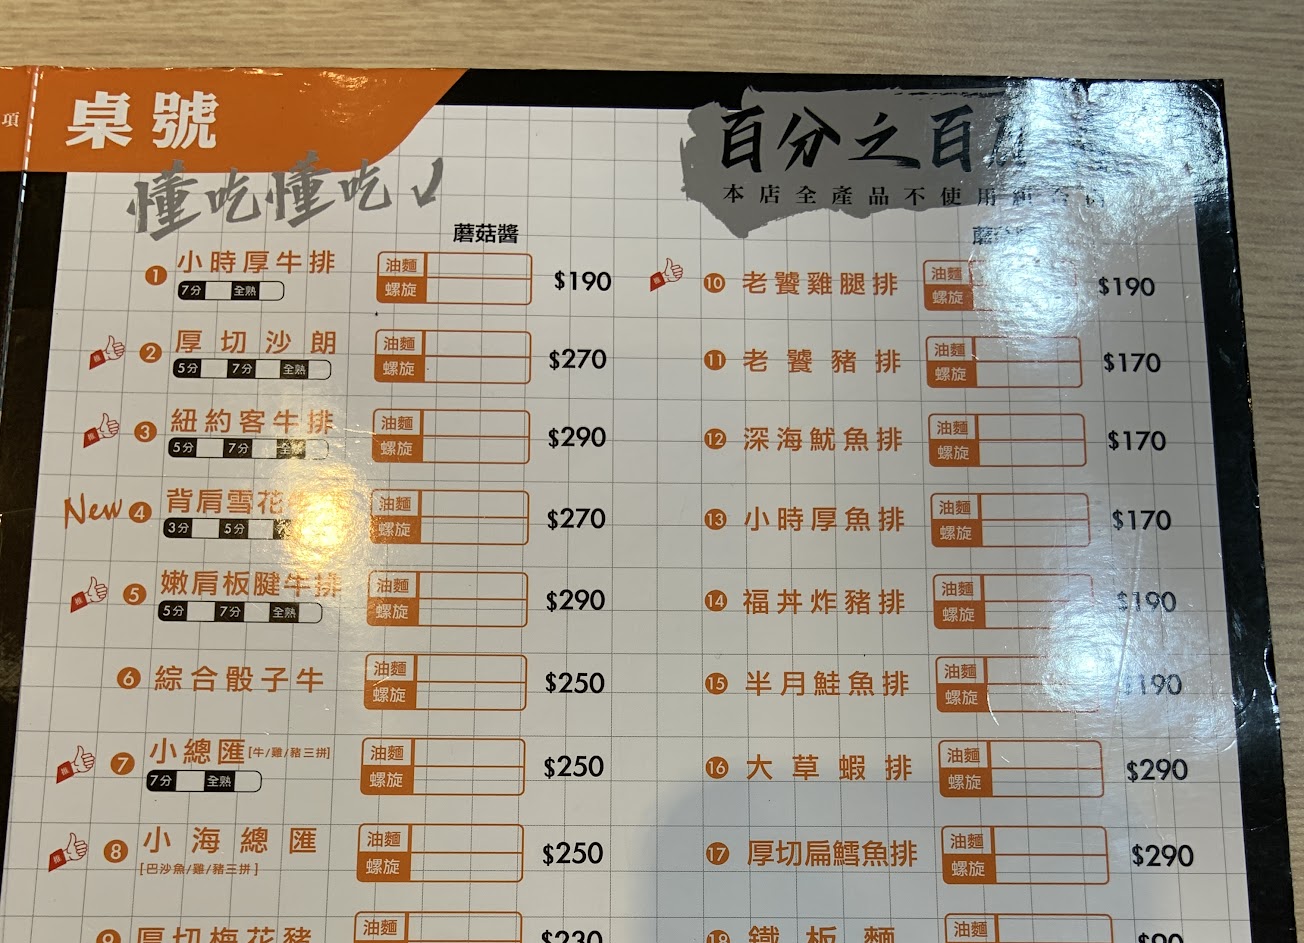 項
桌號
懂吃懂吃
百分之百
本店全產品不使用
蘑菇醬
1 小時厚牛排 油麵 $190
7分 全熟 螺旋
推 2 厚切沙朗 油麵 $270
5分 7分 全熟 螺旋
推 3 紐約客牛排 油麵 $290
5分 7分 全熟 螺旋
New 4 背肩雪花 油麵 $270
3分 5分 螺旋
推 5 嫩肩板腱牛排 油麵 $290
5分 7分 全熟 螺旋
6 綜合骰子牛 油麵 $250
螺旋
推 7 小總匯 [牛/雞/豬三拼] 油麵 $250
7分 全熟 螺旋
推 8 小海總匯 油麵 $250
[巴沙魚/雞/豬三拼] 螺旋
9 厚切梅花豬 油麵 $230
蘑
推 10 老饕雞腿排 油麵 $190
螺旋
11 老饕豬排 油麵 $170
螺旋
12 深海魷魚排 油麵 $170
螺旋
13 小時厚魚排 油麵 $170
螺旋
14 福丼炸豬排 油麵 $190
螺旋
15 半月鮭魚排 油麵 $190
螺旋
16 大草蝦排 油麵 $290
螺旋
17 厚切扁鱈魚排 油麵 $290
螺旋
18 鐵板麵 油麵 $90